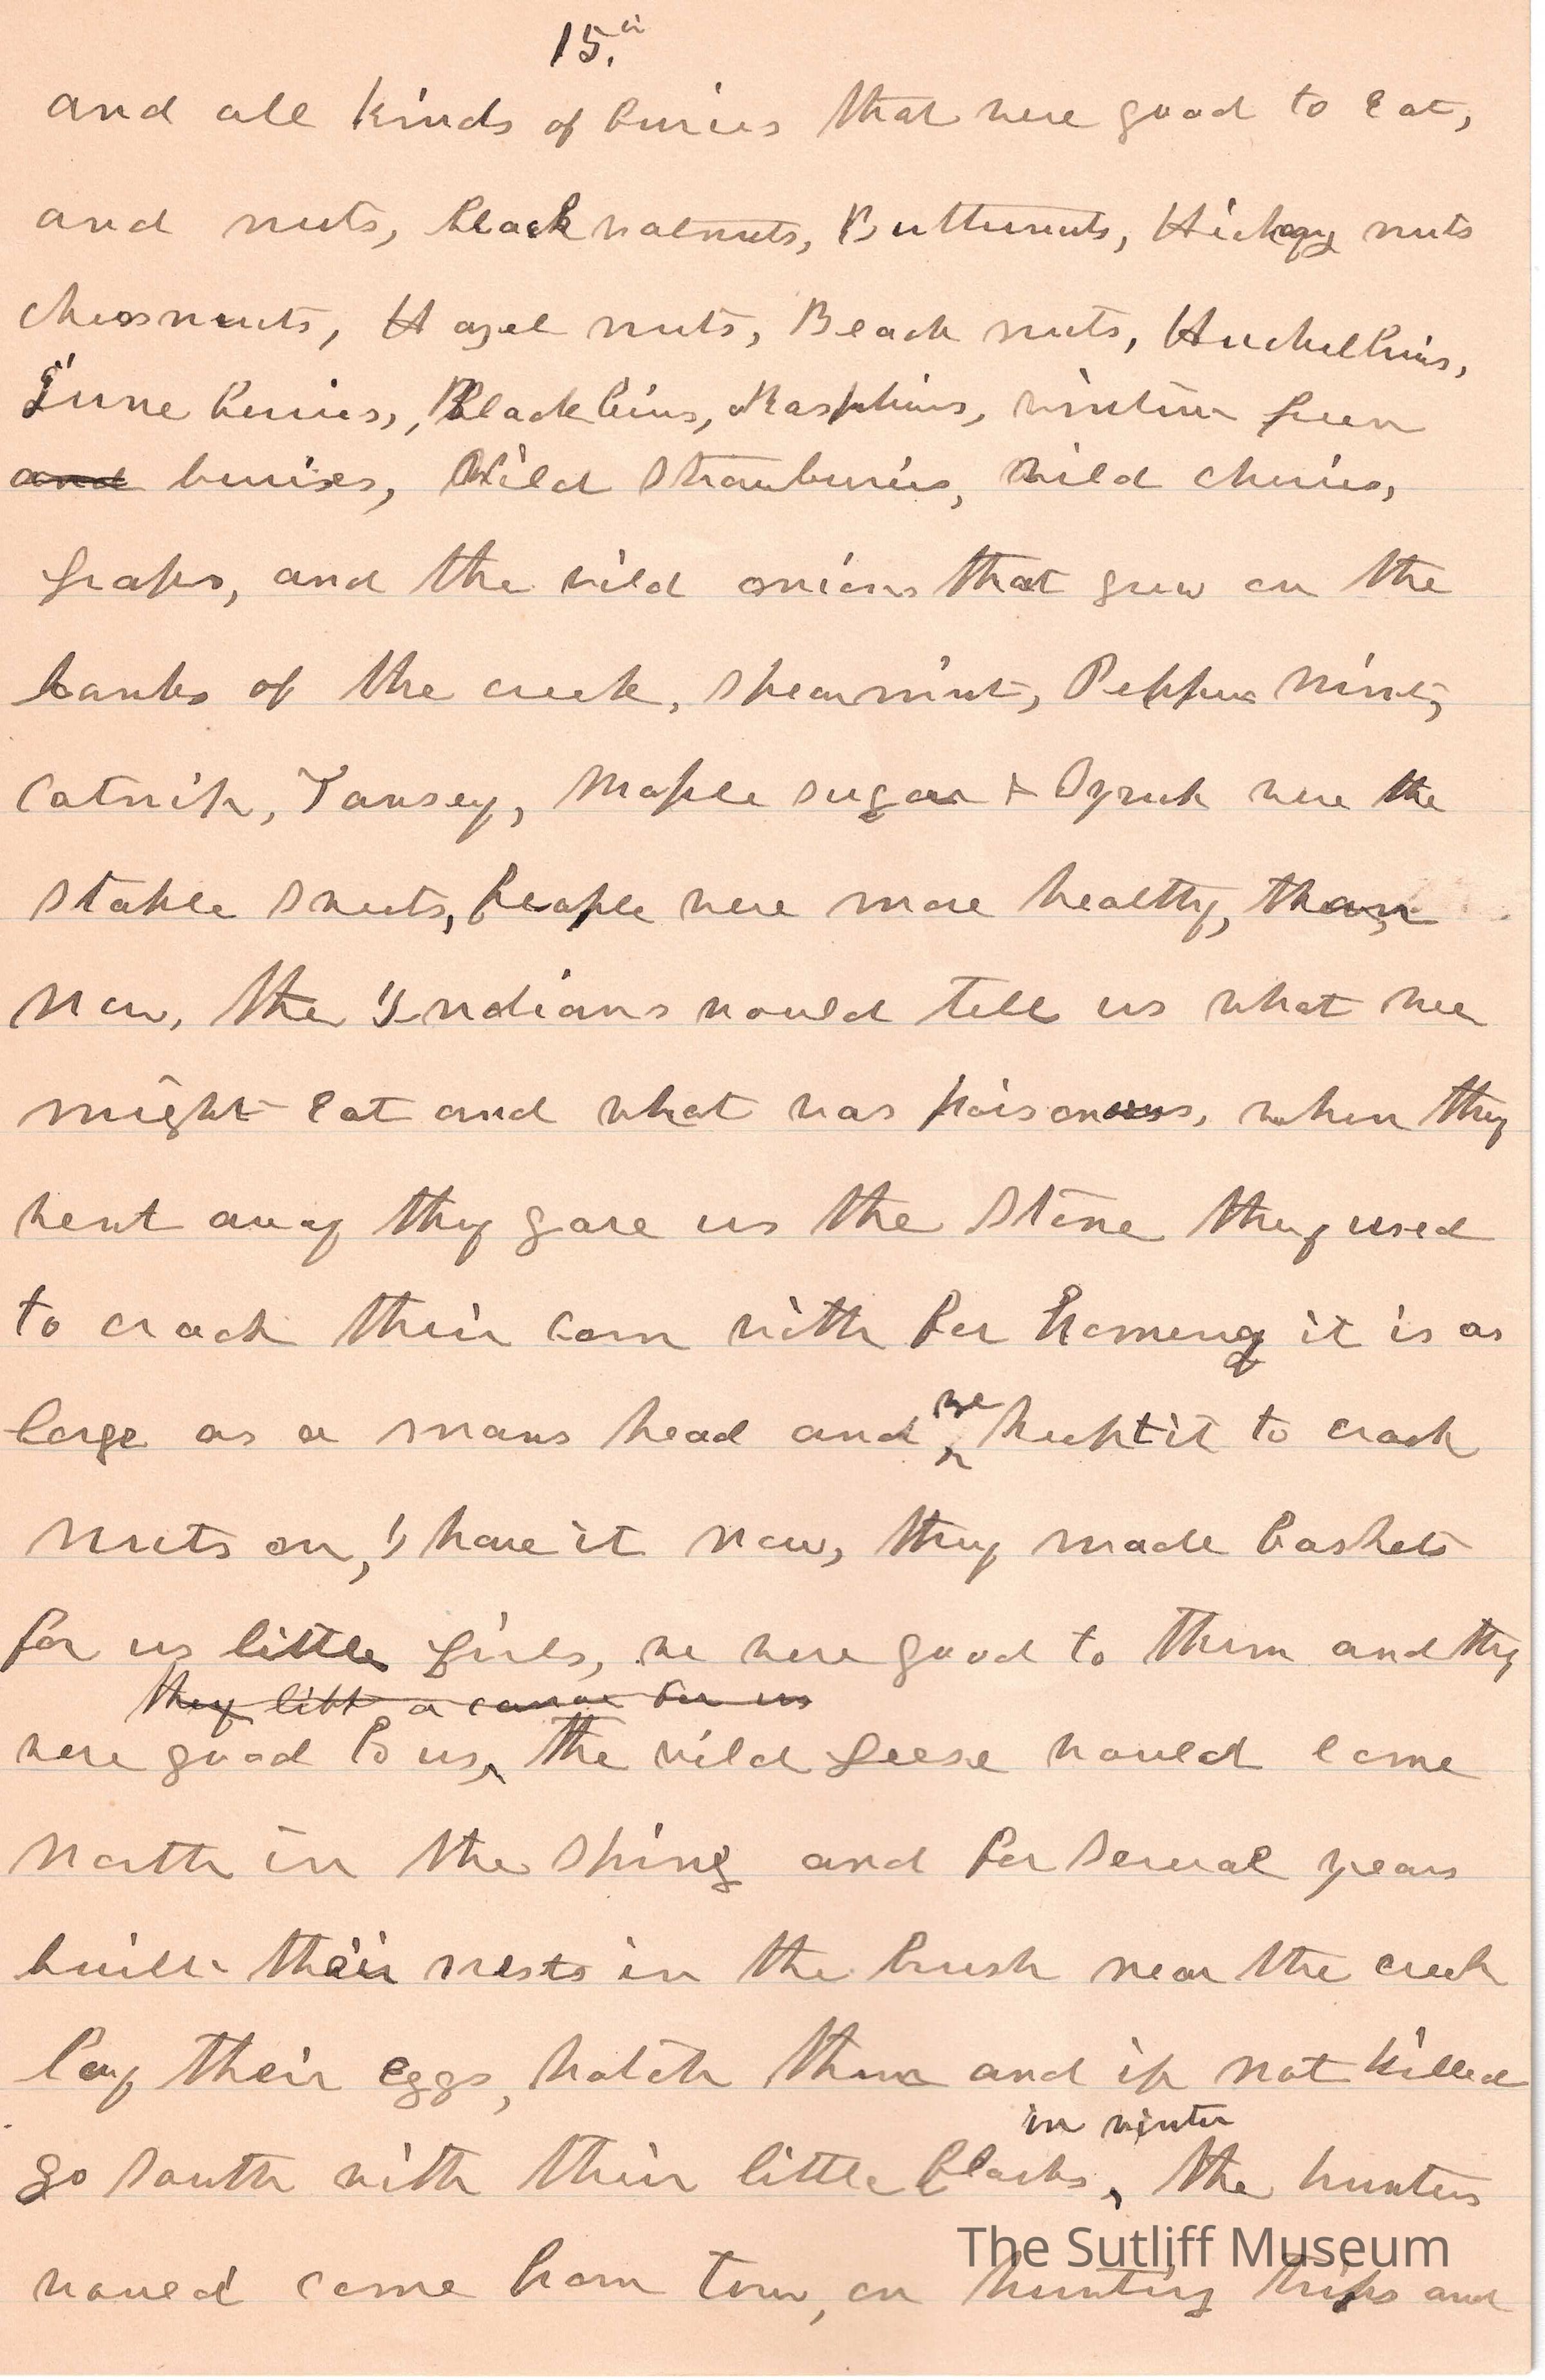 15."
and all kinds of buries that were good to Eat,
and nuts, black walnuts, Butternuts, Hickory nuts
chessnuts, Hazel nuts, Beach nuts, Huckelburis,
June burries, Blackburis, Raspburis, winter green
and burries, Wild Strawburris, wild churies,
graps, and the wild onions that grew on the
banks of the creek, spearmint, Pepper mint,
Catnip, Tansey, Maple sugar & Syrup were the
staple sweets, People were more healthy, than,
now, the Indians would tell us what wee
might Eat and what was poisonous, when they
went away they gave us the Stone they used
to crack their corn with for homeny it is as
large as a mans head and we keept it to crack
nuts on, I have it now, they made baskets
for us little girls, we were good to them and they
they left a canoe for us
were good to us, the wild geese would come
North in the Spring and for several years
built their nests in the brush near the creek
lay their eggs, hatch them and if not killed
in winter
go South with their little flocks, the hunters
would come from town, on hunting trips and
The Sutliff Museum